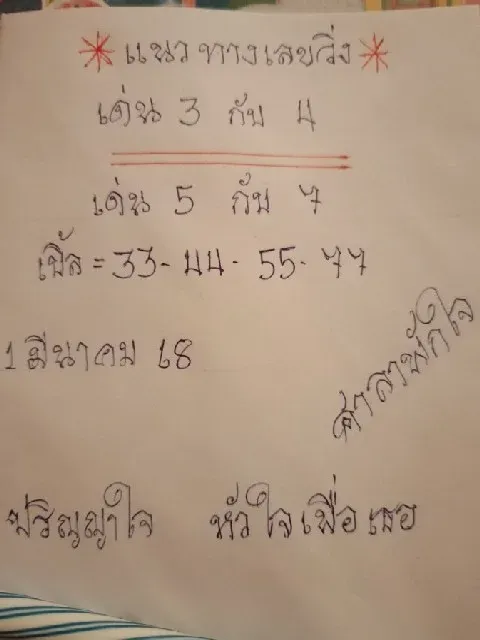 แนวทางเลขวิ่ง
เด่น 3 กับ 4
เด่น 5 กับ 7
เบิ้ล = 33- 44- 55- 77
1 มีนาคม 68
ศาลาพักใจ
ปริญญาใจ หัวใจเพื่อเธอ